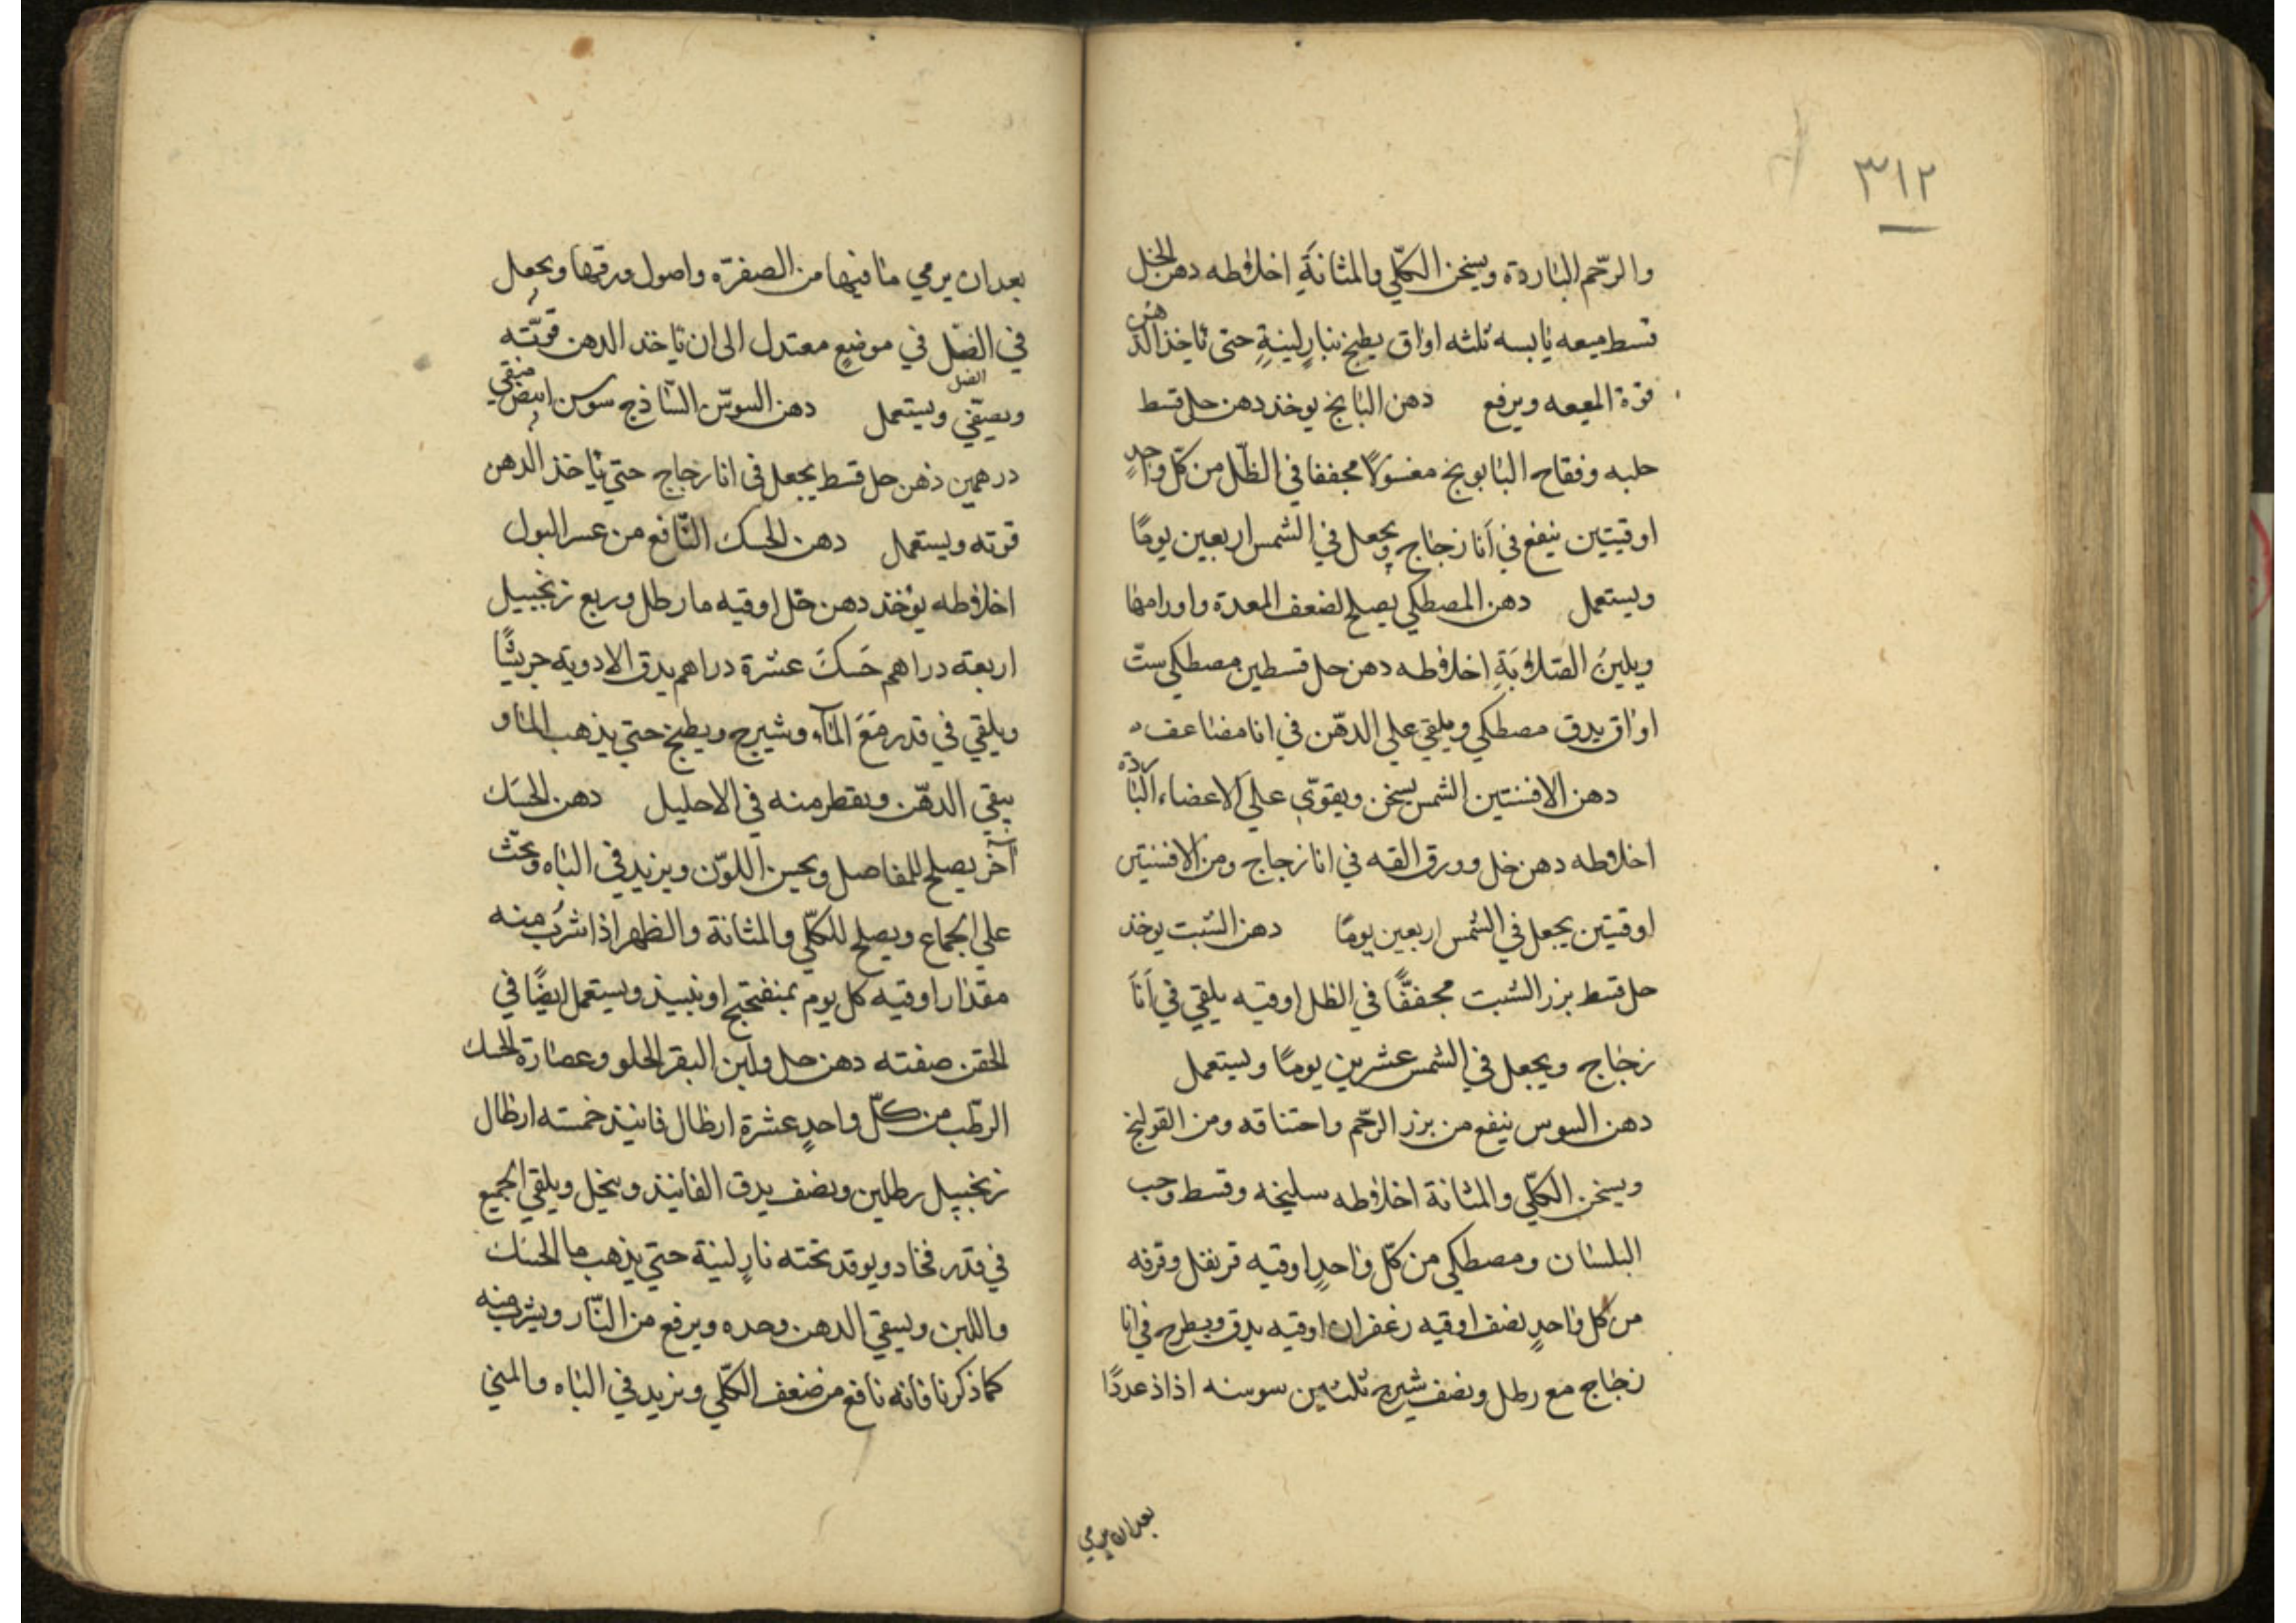 ٣١٢
والرّحم الباردة ويسخن الكلّي والمثانةِ اخلاطه دهن الخل
قسط ميعه يابسه ثلثه اواق يطبخ بنارٍ لينةٍ حتى ياخذ الدهن
قوة الميعه ويرفع دهن البابخ يوخذ دهن حل قسط
حلبه وفقاح البابونج مغسولًا مجففا في الظّل من كلّ واحدٍ
اوقيتين ينفع في أنا زجاج ويجعل في الشمس اربعين يومًا
ويستعمل دهن المصطكي يصلح لضعف المعدة واورامها
ويلين الصّلابَةِ اخلاطه دهن حل قسطين مصطكي ستّ
اواق يدق مصطكي ويلقي علي الدهّن في انا مضاعف ه
دهن الافسنتين الشمس يسخن ويقوّي علي الاعضاء الباردة
اخلاطه دهن خل وورق القه في انا زجاج ومن الافسنتين
اوقيتين يجعل في الشمس اربعين يومًا دهن الشبت يوخذ
حل قسط بزر الشبت مجففًّا في الظل اوقيه يلقي في أناَ
زجاج ويجعل في الشمس عشرين يومًا ويستعمل
دهن السوس ينفع من بزر الرّحم واختناقه ومن القولنج
ويسخن الكلّي والمثانة اخلاطه سليخه وقسط وحب
البلسان ومصطكي من كلّ واحدٍ اوقيه قرنفل وقرفه
من كل واحدٍ نصف اوقيه زعفران اوقيه يدق ويطرح في انا
زجاج مع رطل ونصف شيرج ثلثين سوسنه اذاذ عددًا
بعد ان يرمي
بعد ان يرمي ما فيها من الصفرّه واصول ورقها ويجعل
في الضّل في موضعٍ معتدل الي ان ياخذ الدهن قوّته
الضل
ويصفّي ويستعمل دهن السوسّن السّاذج سوسن ابيض منقي
درهمين دهن حل قسط يجعل في انا زجاج حتي ياخذ الدهن
قوته ويستعمل دهن الحسك النّافع من عسر البول
اخلاطه يوُخذ دهن حّل اوقيه ما رطل وربع زنجبيل
اربعته دراهم حَسكَ عشرة دراهم يدق الادوية جريشًا
ويلقي في قدر مَعَ المآء وشيرج ويطبخ حتي يذهب الماو
يبقي الدهّن ويقطر منه في الاحليل دهن الحسَك
آخر يصلح للمفاصل ويحسن اللوّن ويزيد في الباه ويحثّ
علي الجماع ويصلح للكلّي والمثانة والظهر اذا شُرب منه
مقدار اوقيه كل يوم بمنفتجتج او بنبيذ ويستعمل ايضًا في
الحقن صفته دهن حل ولبن البقر الحلو وعصارة الحسك
الرطّب من كلّ واحدٍ عشرة ارطال فانيذ خمسته ارطال
زنجبيل رطلين ونصف يدق الفانيذ وينخل ويلقي الجميع
في قدر فخاد ويوقد تحته نارٍ لينة حتي يذهب ما الحسك
واللبن ويبقي الدهن وحده ويرفع من النّار ويشرب منه
كما ذكرنا فانه نافع من ضعف الكلّي ويزيد في الباه والمني